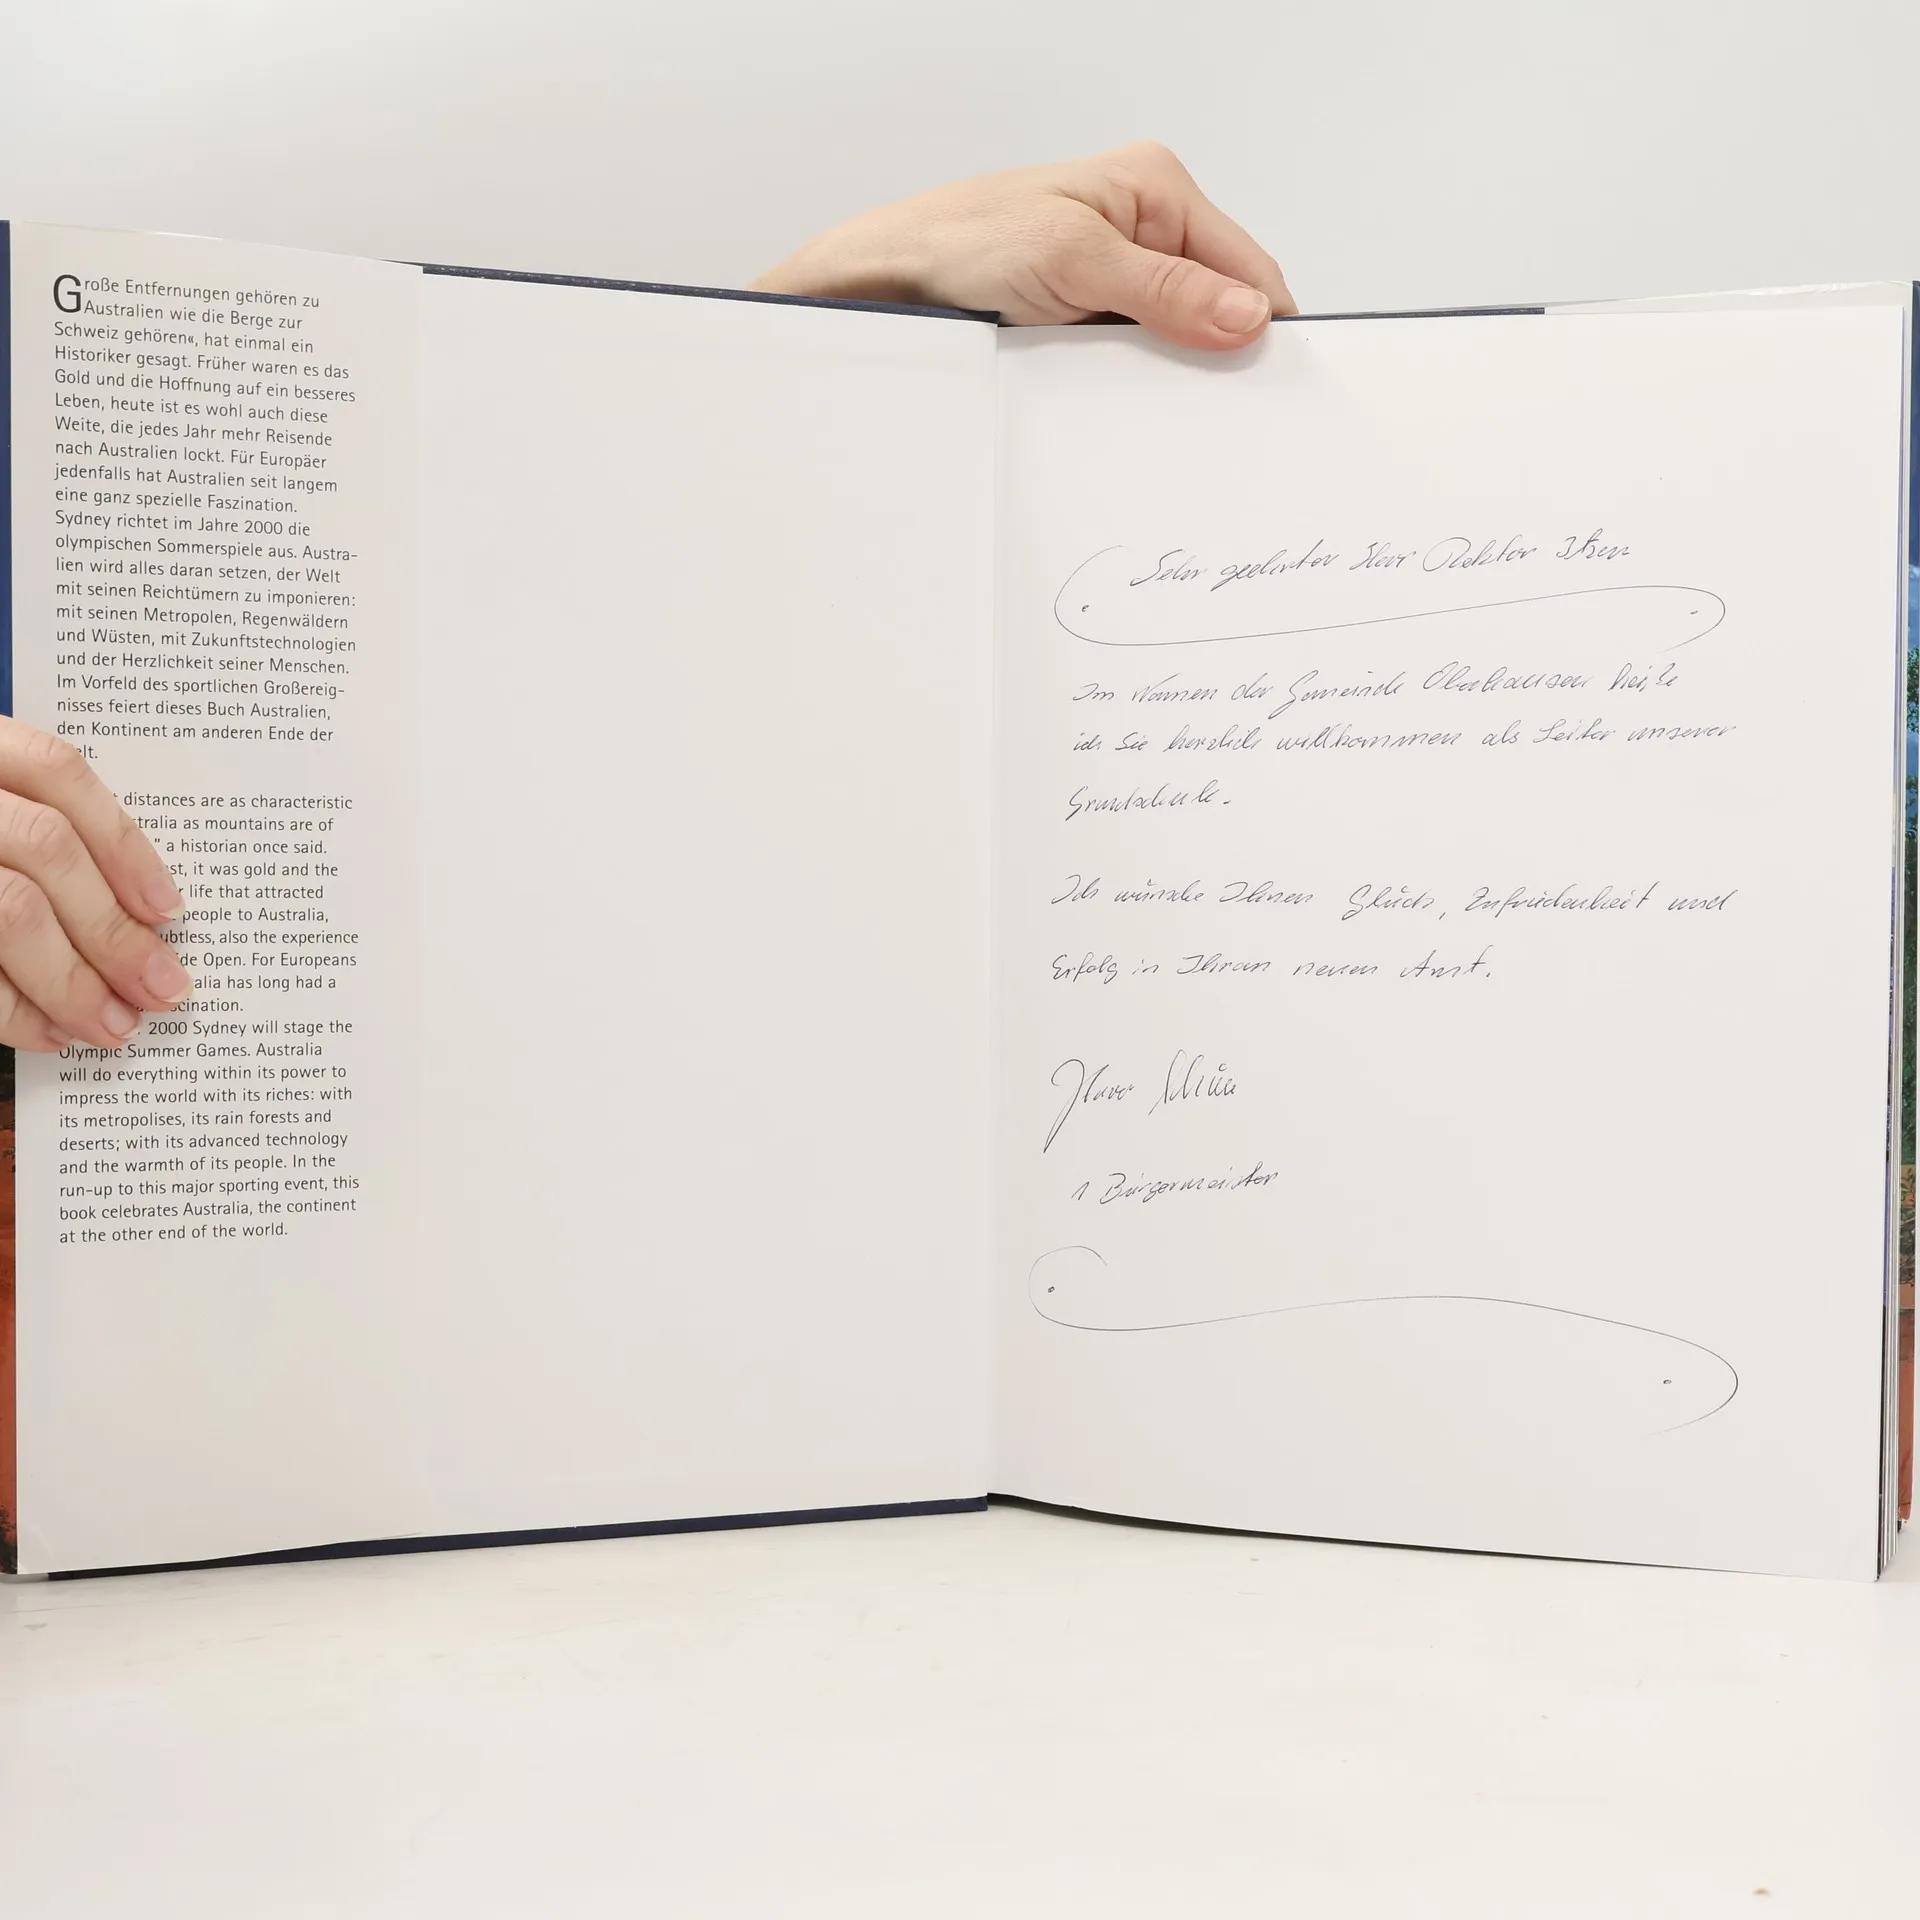 Große Entfernungen gehören zu
Australien wie die Berge zur
Schweiz gehören«, hat einmal ein
Historiker gesagt. Früher waren es das
Gold und die Hoffnung auf ein besseres
Leben, heute ist es wohl auch diese
Weite, die jedes Jahr mehr Reisende
nach Australien lockt. Für Europäer
jedenfalls hat Australien seit langem
eine ganz spezielle Faszination.
Sydney richtet im Jahre 2000 die
olympischen Sommerspiele aus. Austra-
lien wird alles daran setzen, der Welt
mit seinen Reichtümern zu imponieren:
mit seinen Metropolen, Regenwäldern
und Wüsten, mit Zukunftstechnologien
und der Herzlichkeit seiner Menschen.
Im Vorfeld des sportlichen Großereig-
nisses feiert dieses Buch Australien,
den Kontinent am anderen Ende der
lt.
distances are as characteristic
stralia as mountains are of
" a historian once said.
st, it was gold and the
life that attracted
people to Australia,
ubtless, also the experience
de Open. For Europeans
alia has long had a
scination.
2000 Sydney will stage the
Olympic Summer Games. Australia
will do everything within its power to
impress the world with its riches: with
its metropolises, its rain forests and
deserts; with its advanced technology
and the warmth of its people. In the
run-up to this major sporting event, this
book celebrates Australia, the continent
at the other end of the world.
Sehr geehrter Herr Rektor
Im Namen der Gemeinde Oberhausen heiße
ich Sie herzlich willkommen als Leiter unserer
Grundschule.
Ich wünsche Ihnen Glück, Zufriedenheit und
Erfolg in Ihrem neuen Amt.
1 Bürgermeister